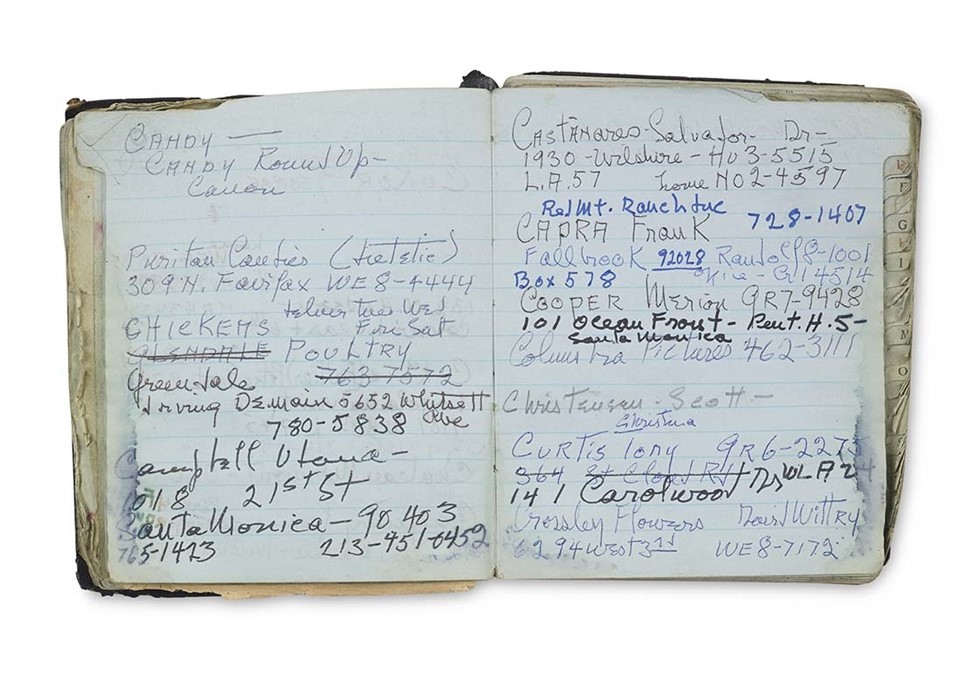 CANDY —
CANDY Round Up-
Canon
Puritan Candies (dietetic)
309 N. Fairfax WE8-4444
CHICKENS
deliver Tues Wed
Fri Sat
GLENDALE POULTRY
Greendale 763-7572
Irving Demain 5652 Whitsett
Ave
780-5838
Campbell
018 21st St
Santa Monica - 90403
765-1423 213-451-0452
CASTANARES-Salvador- Dr-
1930-Wilshire-HU3-5515
L.A.57 home NO2-4597
Red Mt. Ranch Inc
CAPRA Frank 728-1407
Fallbrook 92028 Randolf8-1001
Box 578
COOPER Merion GR7-9428
101 Ocean Front- Pent. H.5-
Santa Monica
Columbia Pictures 462-3111
Christensen-Scott-
Christina
CURTIS Tony GR6-2273
364 St Cloud Rd
141 Carolwood Dr WLA 24
Crossley Flowers David Wittry
6294 West 3rd WE8-7172
E
F
G
N
O